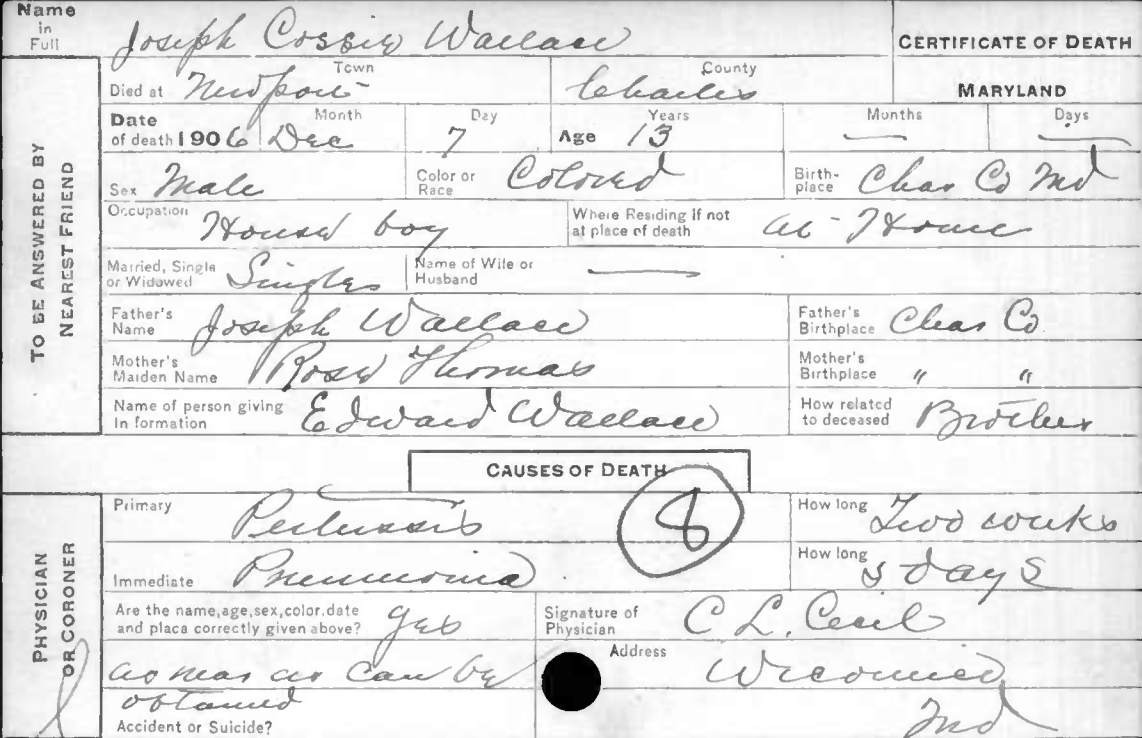 Name in Full Joseph Cossie Wallace
CERTIFICATE OF DEATH
MARYLAND
TO BE ANSWERED BY NEAREST FRIEND
Died at Newport Town Charles County
Date of death 1906 Month Dec Day 7 Age Years 13 Months — Days —
Sex Male Color or Race Colored Birth-place Chas Co Md
Occupation House boy Where Residing if not at place of death at Home
Married, Single or Widowed Single Name of Wife or Husband —
Father's Name Joseph Wallace Father's Birthplace Chas Co.
Mother's Maiden Name Rose Thomas Mother's Birthplace " "
Name of person giving In formation Edward Wallace How related to deceased Brother
CAUSES OF DEATH
PHYSICIAN OR CORONER
Primary Pertussis 8 How long Two weeks
Immediate Pneumonia How long 5 days
Are the name, age, sex, color, date and place correctly given above? yes Signature of Physician C L. Cecil
as near as can be Address Wicomico
obtained Md
Accident or Suicide?